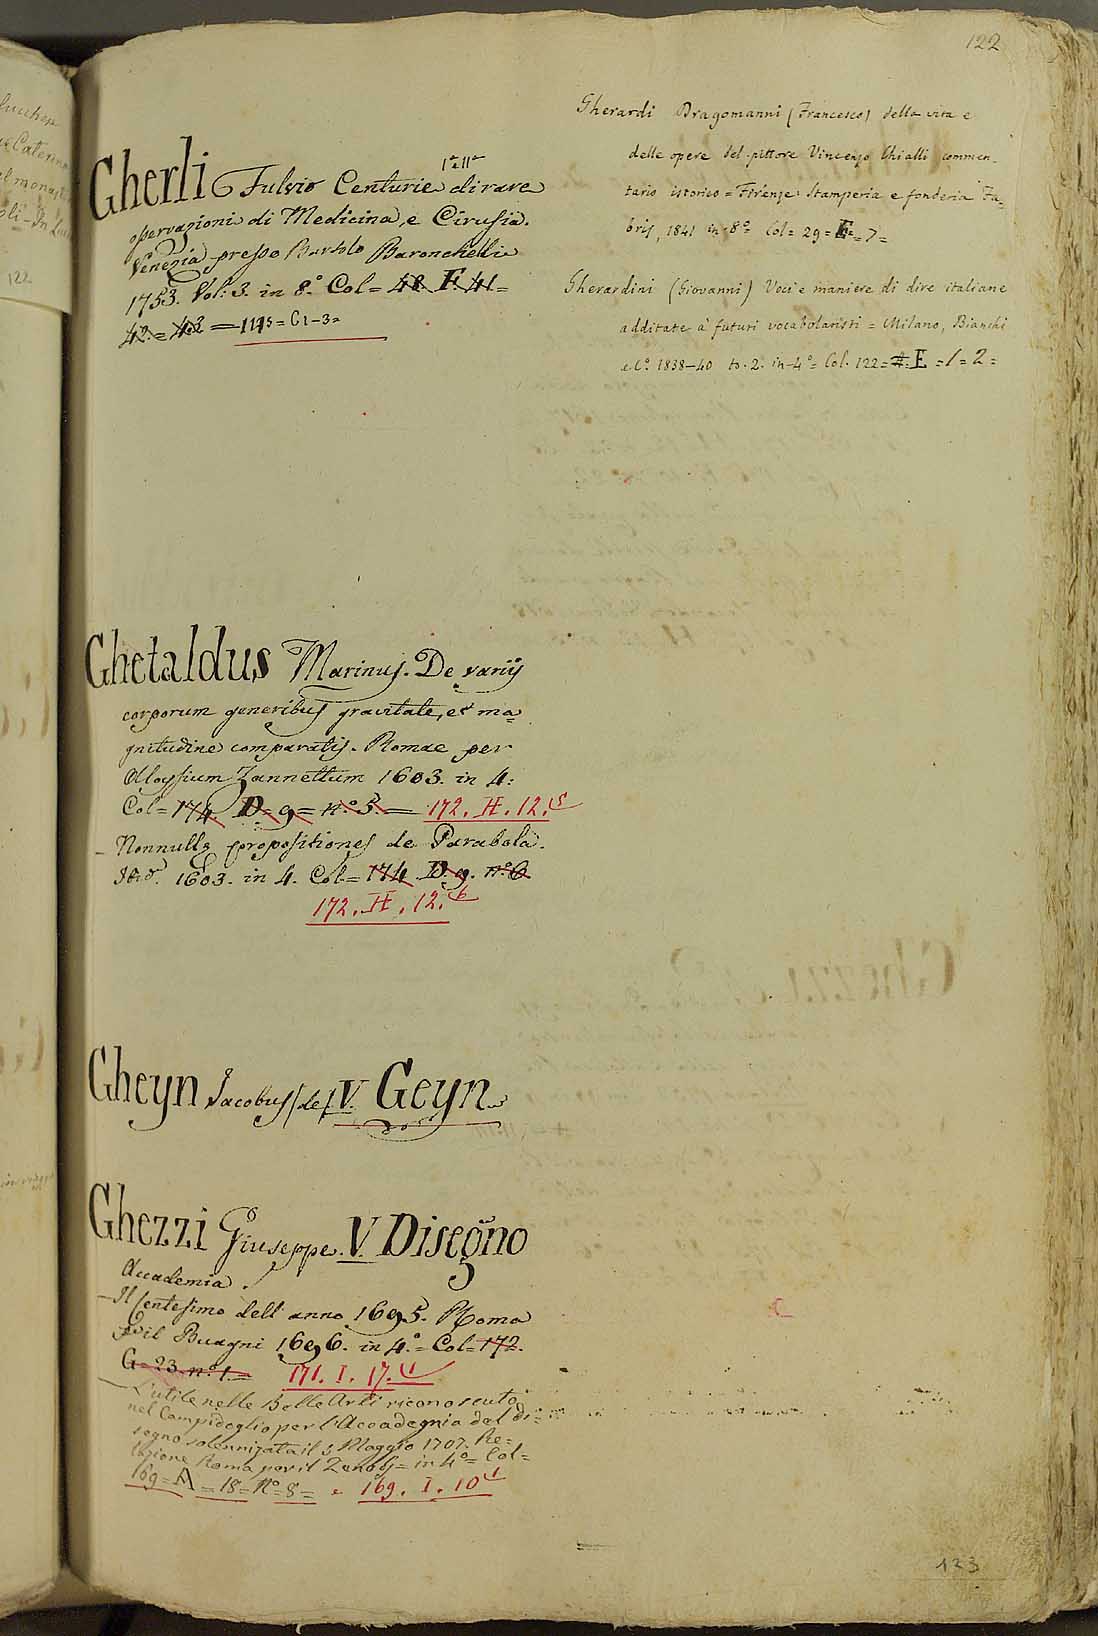 122
Gherli Fulvio Centurie di rare
osservazioni di Medicina, e Cirusia.
Venezia presso Bartolo Baronchelli
1753. Vol: 3. in 8.° Col = 48. F. 41 =
42. = 4.2 = 1195 = G 1-3 =
Ghetaldus Marinus. De varijs
corporum generibus gravitate, et ma=
gnitudine comparatis. Romae per
Aloysium Zannettum 1603. in 4:
Col = 174. D = 9 = n.° 5. = 172. H. 12.5
– Nonnullę propositiones de Parabola.
Ibid. 1603. in 4. Col = 174 D. 9. n.° 6
172. H. 12. 6
Gheyn Jacobus (de) V. Geyn
Ghezzi Giuseppe. V. Disegno
Accademia.
– Il Centesimo dell' anno 1695. Roma
p il Buagni 1696. in 4.° = Col = 172.
G = 23. n.° 1. = 171. I. 17. 1
– L'utile nelle Belle Arti riconosciuto
nel Campidoglio per l'Accadegnia del di=
segno solennizata il 5 Maggio 1707. Re=
lazione Roma per il Zenobj = in 4° = Col =
169 = A = 18 = N° = 8 = 169. I. 10 1
Gherardi Dragomanni (Francesco) della vita e
delle opere del pittore Vincenzo Chialli commen-
tario istorico = Firenze Stamperia e fonderia Fa=
bris, 1841 in 8° Col = 29 = E = 7 =
Gherardini (Giovanni) Voci e maniere di dire italiane
additate a' futuri vocabolaristi = Milano, Bianchi
e C.° 1838-40 to. 2. in 4° = Col. 122 = E = 1 = 2 =
123